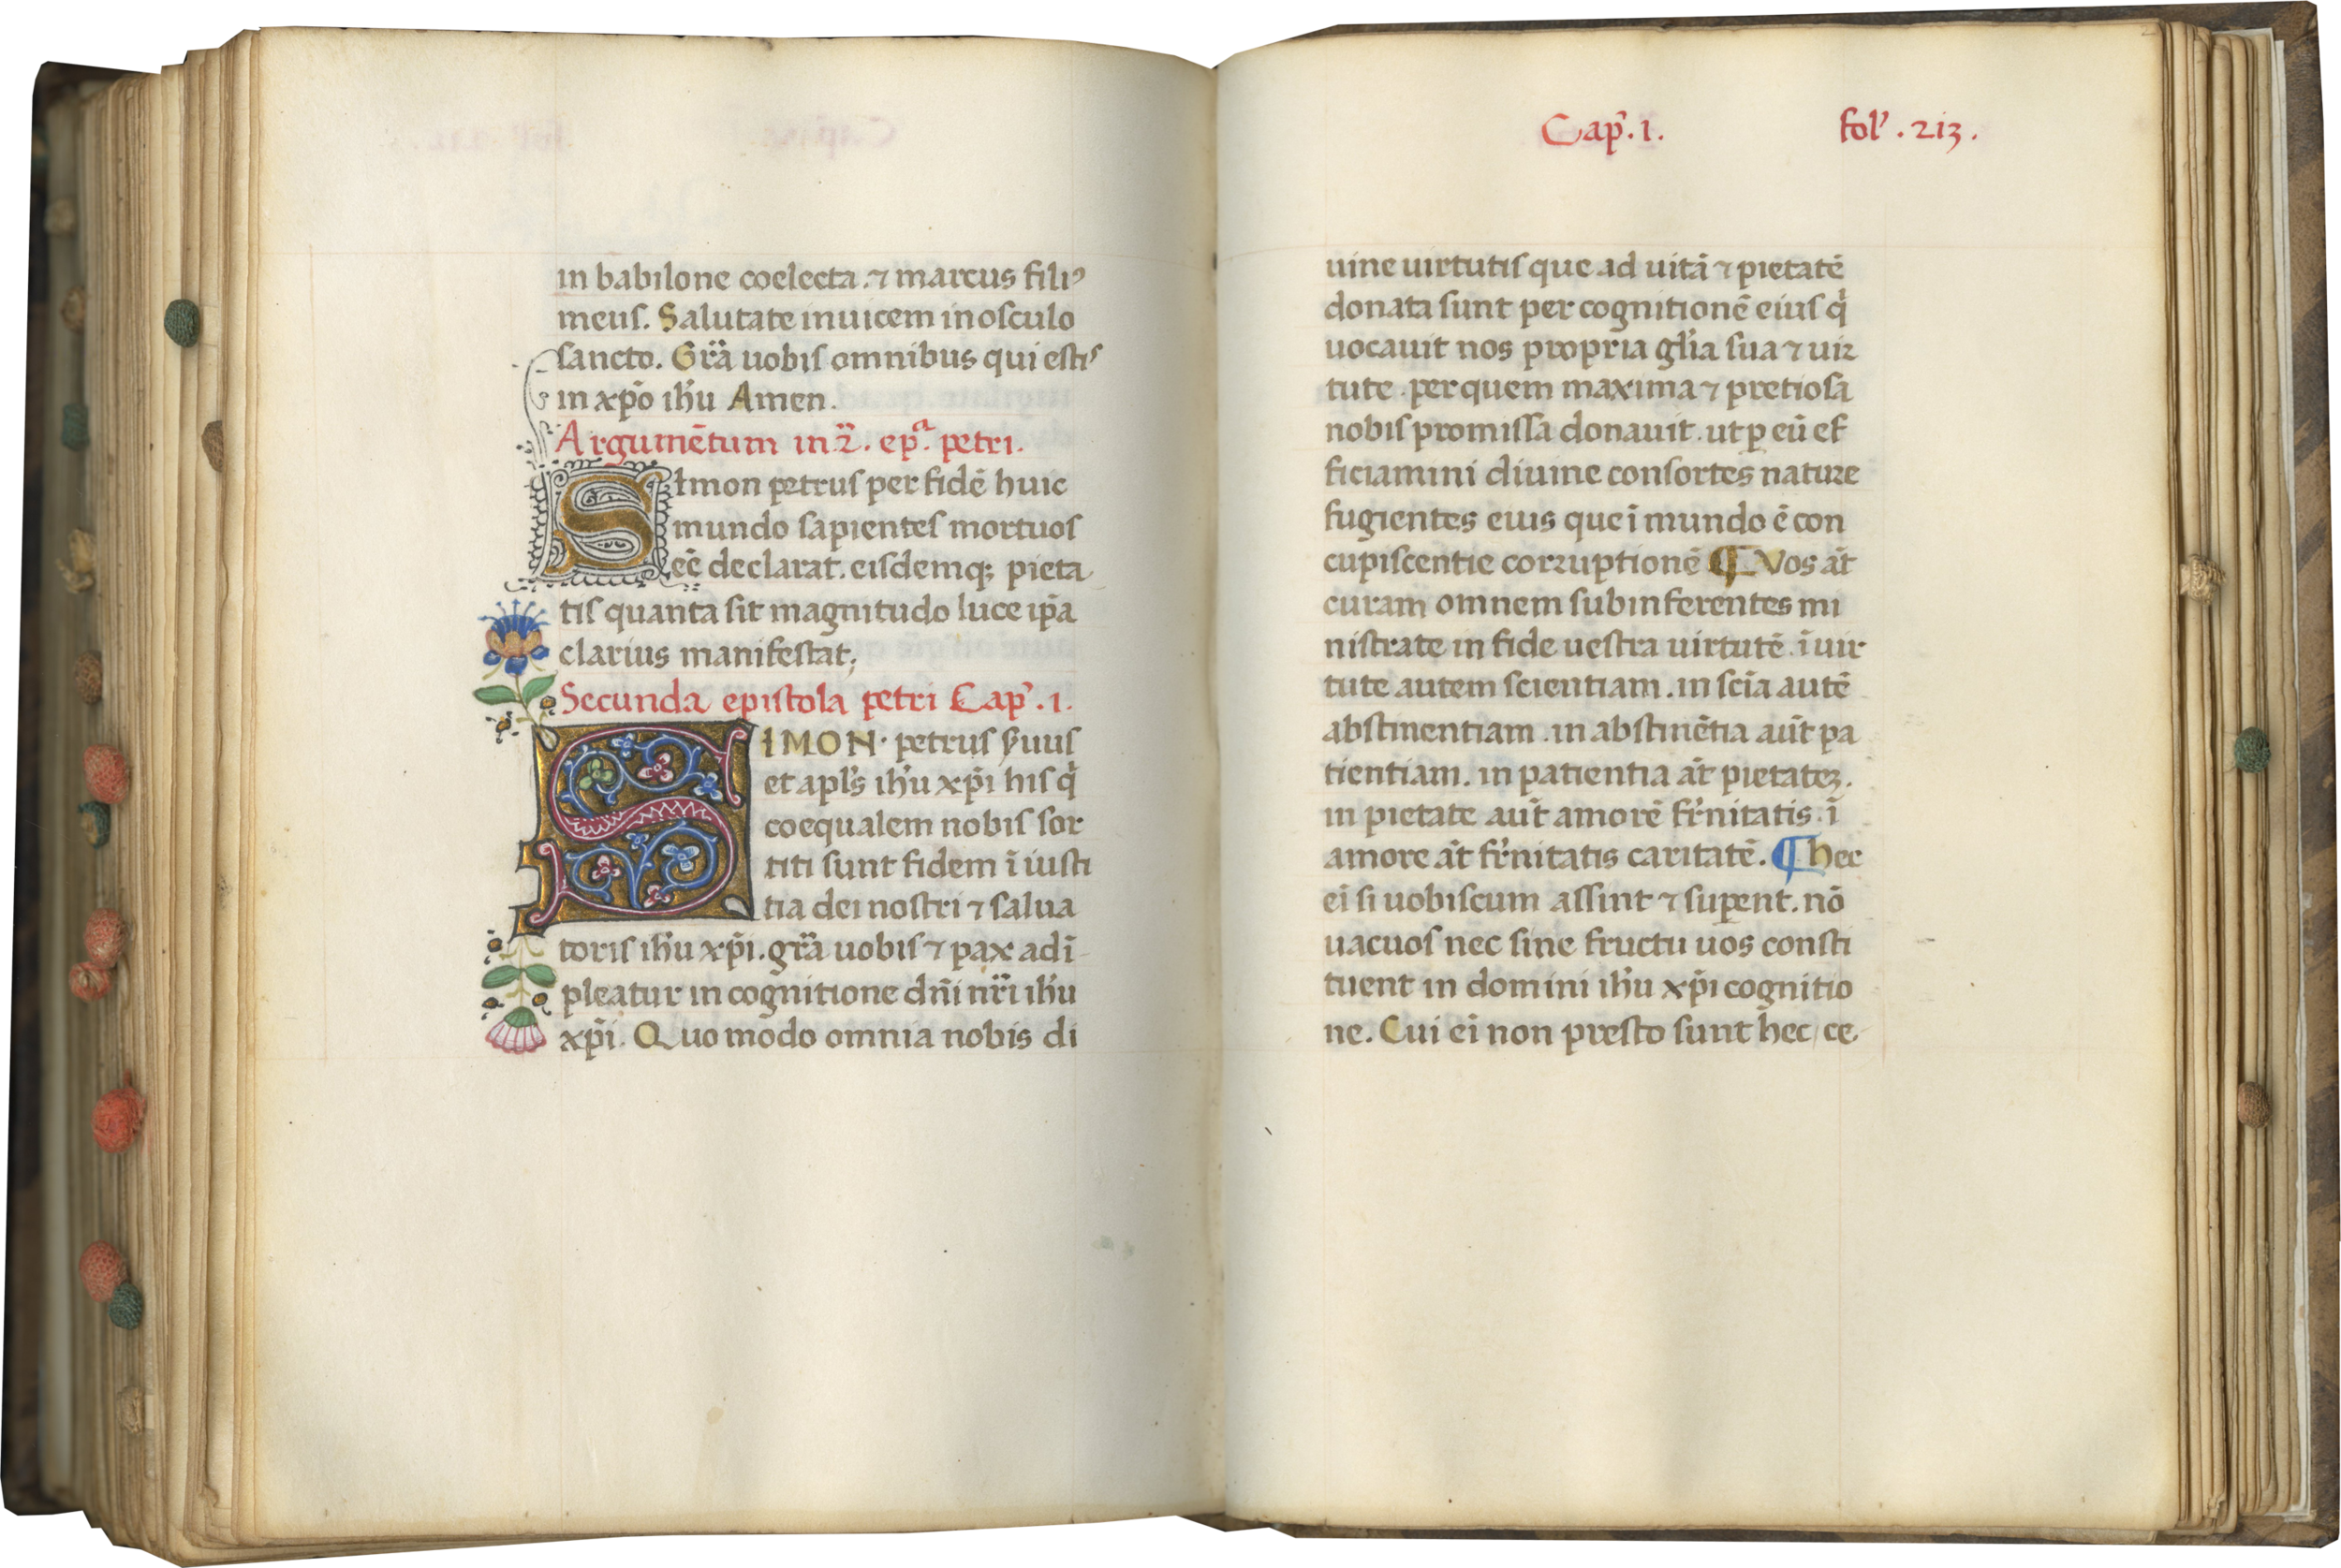 in babilone coelecta. ⁊ marcus filiꝰ
meus. Salutate inuicem in osculo
sancto. Gr̄a uobis omnibus qui estis
in xp̄o ih̄u Amen.
Argumētum in .2̄. ep.ᵃ petri.
Simon petrus per fidē huic
mundo sapientes mortuos
eē declarat. eisdemq; pieta
tis quanta sit magnitudo luce ip̄a
clarius manifestat;
Secunda epistola petri Cap̉. 1.
SIMON petrus s̉uus
et apl̉s ih̉u xp̄i his q̇
coequalem nobis sor
titi sunt fidem ī iusti
tia dei nostri ⁊ salua
toris ih̉u xp̄i. gr̄a uobis ⁊ pax adī
pleatur in cognitione dn̄i nr̄i ih̉u
xp̄i. Quo modo omnia nobis di
Cap̉. 1. fol̉. 213.
uine uirtutis que ad uitā ⁊ pietatē
donata sunt per cognitionē eius q̇
uocauit nos propria gl̉ia sua ⁊ uir
tute. per quem maxima ⁊ pretiosa
nobis promissa donauit. ut ꝑ eū ef
ficiamini diuine consortes nature
fugientes eius que ī mundo ē con
cupiscentie corruptionē ¶ Vos āt
curam omnem subinferentes mi
nistrate in fide uestra uirtutē. ī uir
tute autem scientiam. in scīa autē
abstinentiam. in abstinētia aūt pa
tientiam. in patientia āt pietateꝫ.
in pietate aūt amorē fr̉nitatis. ī
amore āt fr̉nitatis caritatē. ¶ Hec
eī si uobiscum assint ⁊ suꝑent. nō
uacuos nec sine fructu uos consti
tuent in domini ih̉u xp̄i cognitio
ne. Cui eī non presto sunt hec, ce